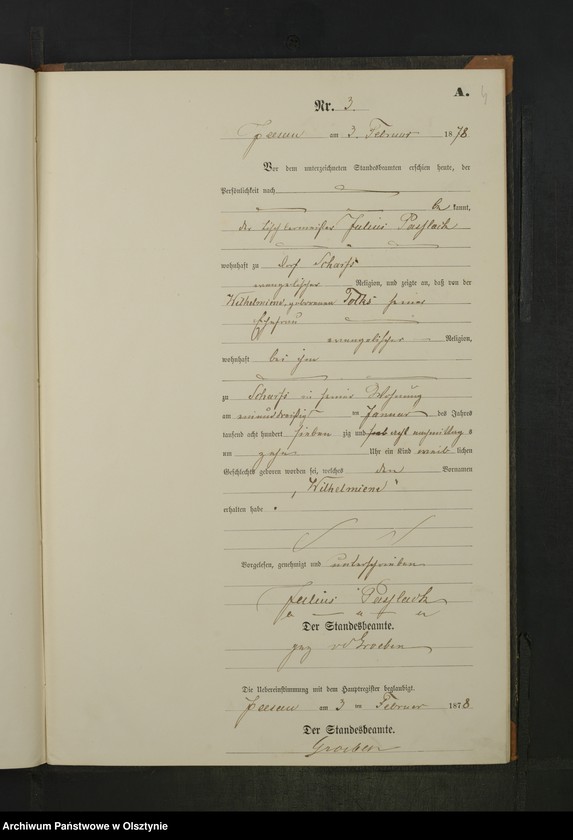 A.
4
Nr. 3.
am 3. Februar 1878
Vor dem unterzeichneten Standesbeamten erschien heute, der
Persönlichkeit nach
be kannt,
der Tischlermeister Julius
wohnhaft zu Dorf Scharfs
evangelischer Religion, und zeigte an, daß von der
Wilhelmiene, geborenen Tolks seiner
Ehefrau
evangelischer Religion,
wohnhaft bei ihm
zu Scharfs in seiner Wohnung
am einunddreißigst en Januar des Jahres
tausend acht hundert sieben zig und acht nachmittag s
um zehn Uhr ein Kind weib lichen
Geschlechts geboren worden sei, welches den Vornamen
„Wilhelmiene“
erhalten habe.
Vorgelesen, genehmigt und unterschrieben
Julius
Der Standesbeamte.
gez v d Groeben
Die Uebereinstimmung mit dem Hauptregister beglaubigt.
am 3 ten Februar 1878.
Der Standesbeamte.
Groeben
Archiwum Państwowe w Olsztynie